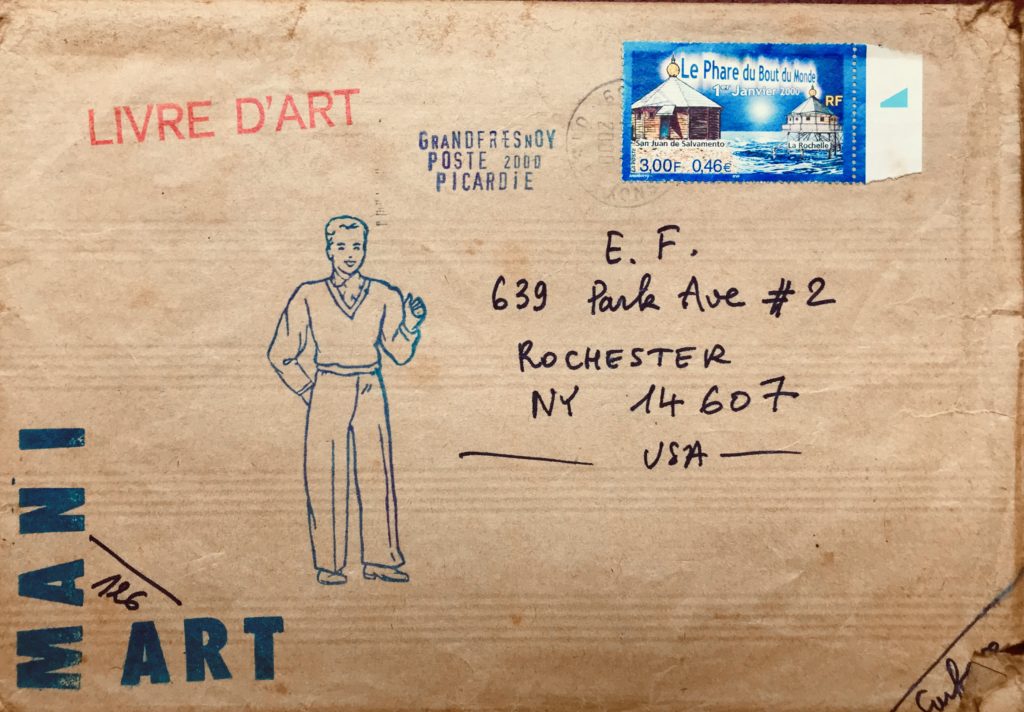 LIVRE D'ART
GRANDFRESNOY
POSTE 2000
PICARDIE
Le Phare du Bout du Monde
1er Janvier 2000
RF
San Juan de Salvamento
La Rochelle
3,00F 0,46€
E. F.
639 Park Ave #2
ROCHESTER
NY 14607
USA
MANI
126
ART